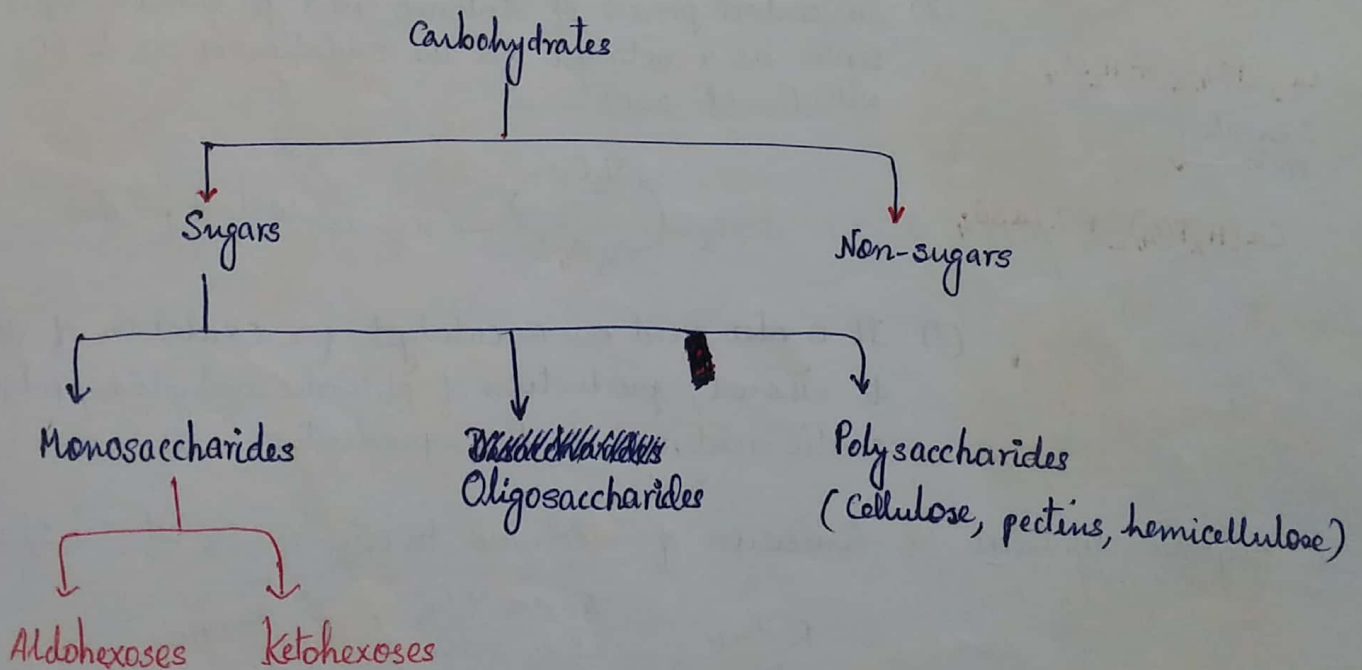 Carbohydrates
Sugars
Non-sugars
Monosaccharides
Oligosaccharides
Polysaccharides
(Cellulose, pectins, hemicellulose)
Aldohexoses
Ketohexoses